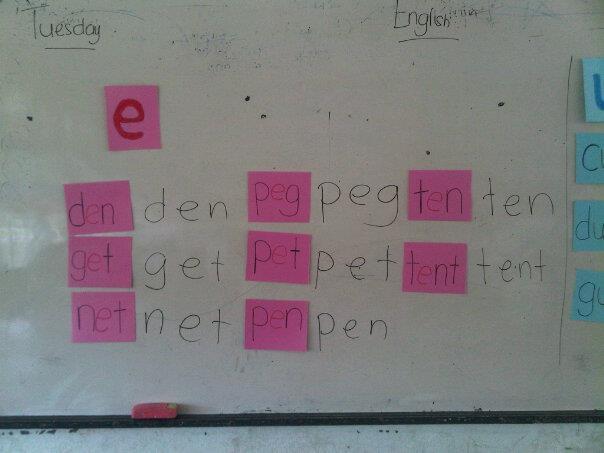 Tuesday English
e
den den peg peg ten ten
get get pet pet tent tent
net net pen pen